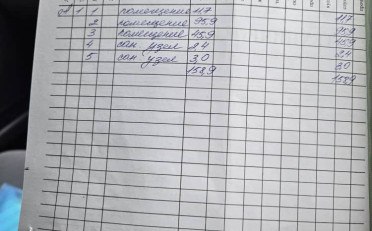 1 1 помещение 11,7 11,7
2 помещение 95,9 95,9
3 помещение 45,9 45,9
4 сан узел 2,4 2,4
5 сан узел 3,0 3,0
158,9 158,9